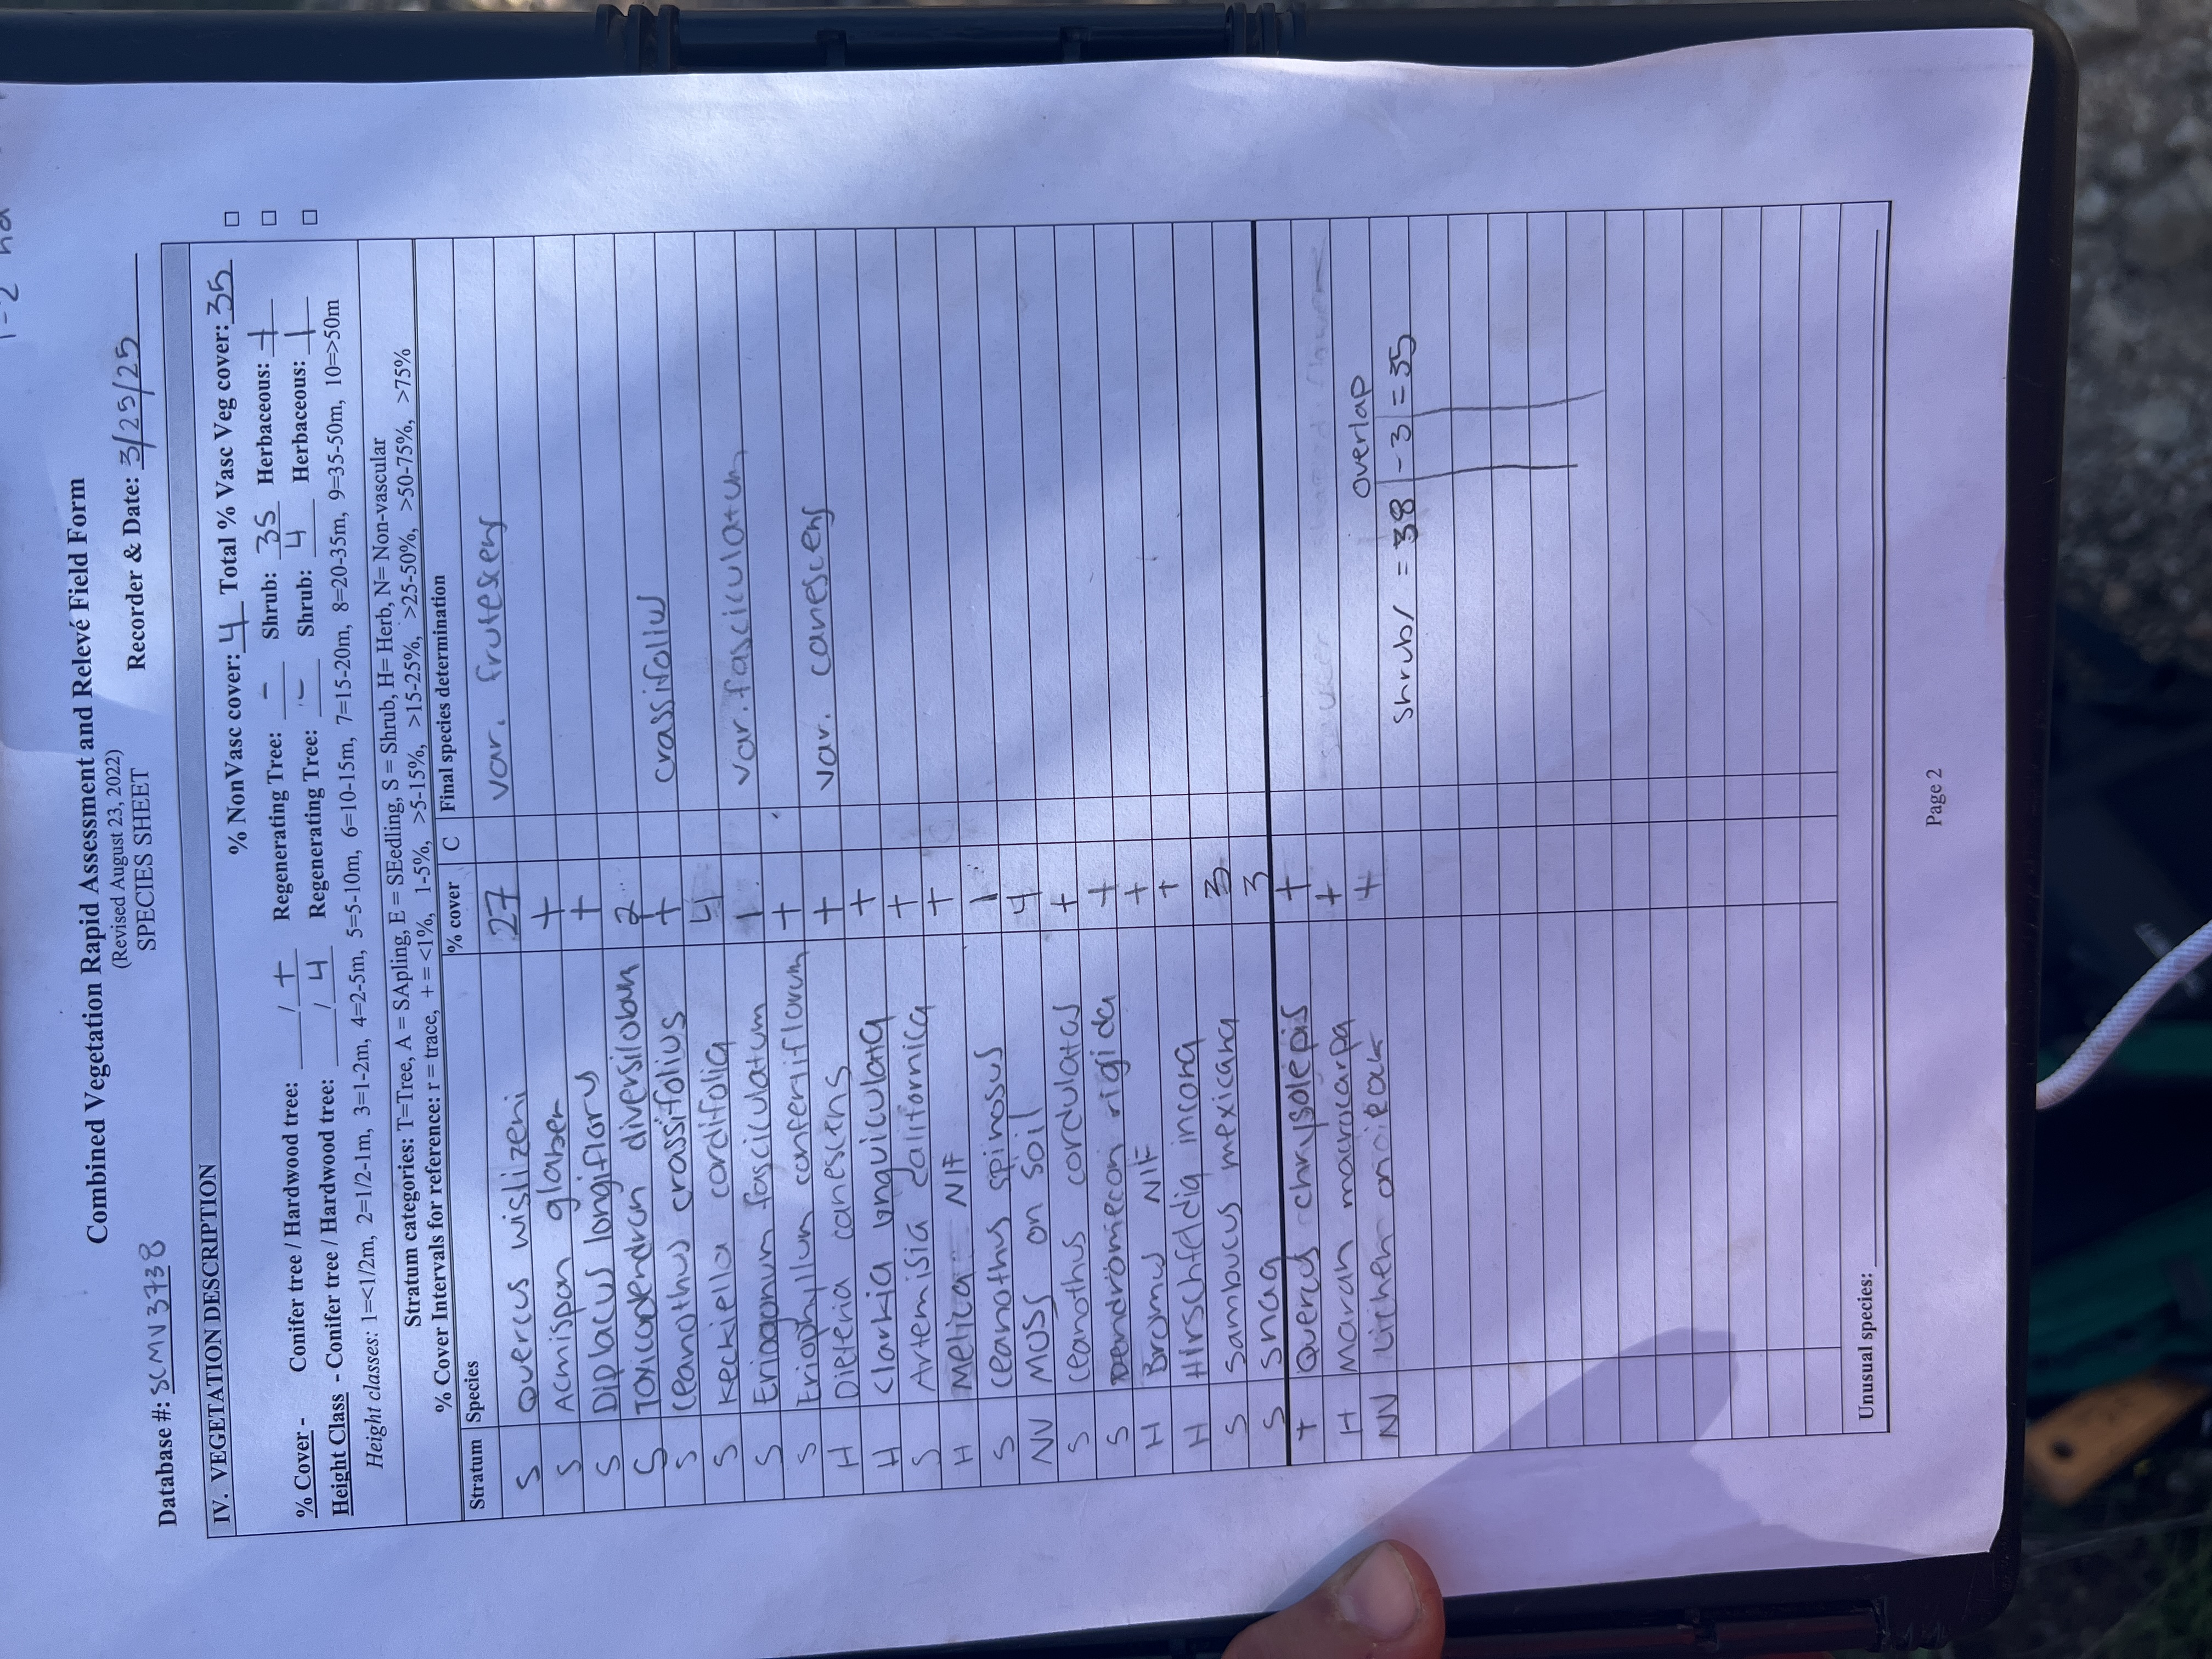 Combined Vegetation Rapid Assessment and Relevé Field Form
(Revised August 23, 2022)
SPECIES SHEET
Database #: SCMV3738 Recorder & Date: 3/25/25
IV. VEGETATION DESCRIPTION
% NonVasc cover: 4 Total % Vasc Veg cover: 35
% Cover - Conifer tree / Hardwood tree: / + Regenerating Tree: - Shrub: 35 Herbaceous: +
Height Class - Conifer tree / Hardwood tree: / 4 Regenerating Tree: - Shrub: 4 Herbaceous: 1
Height classes: 1=<1/2m, 2=1/2-1m, 3=1-2m, 4=2-5m, 5=5-10m, 6=10-15m, 7=15-20m, 8=20-35m, 9=35-50m, 10=>50m
Stratum categories: T=Tree, A = SApling, E = SEedling, S = Shrub, H= Herb, N= Non-vascular
% Cover Intervals for reference: r = trace, + = <1%, 1-5%, >5-15%, >15-25%, >25-50%, >50-75%, >75%
Stratum Species % cover C Final species determination
S Quercus wislizeni 27 var. frutescens
S Acmispon glaber +
S Diplacus longiflorus +
S Toxicodendron diversilobum 2
S Ceanothus crassifolius + crassifolius
S Keckiella cordifolia 4
S Eriogonum fasciculatum 1 var. fasciculatum
S Eriophyllum confertiflorum +
H Dieteria canescens + var. canescens
H Clarkia unguiculata +
S Artemisia californica +
H Melica NIF +
S Ceanothus spinosus 1
NV Moss on soil 4
S Ceanothus cordulatus +
S Dendromecon rigida +
H Bromus NIF +
H Hirschfeldia incana +
S Sambucus mexicana 3
S Snag 3
T Quercus chrysolepis +
H Marah macrocarpa +
NV Lichen on rock +
Overlap
Shrub/ = 38 -3 = 35
Unusual species:
Page 2